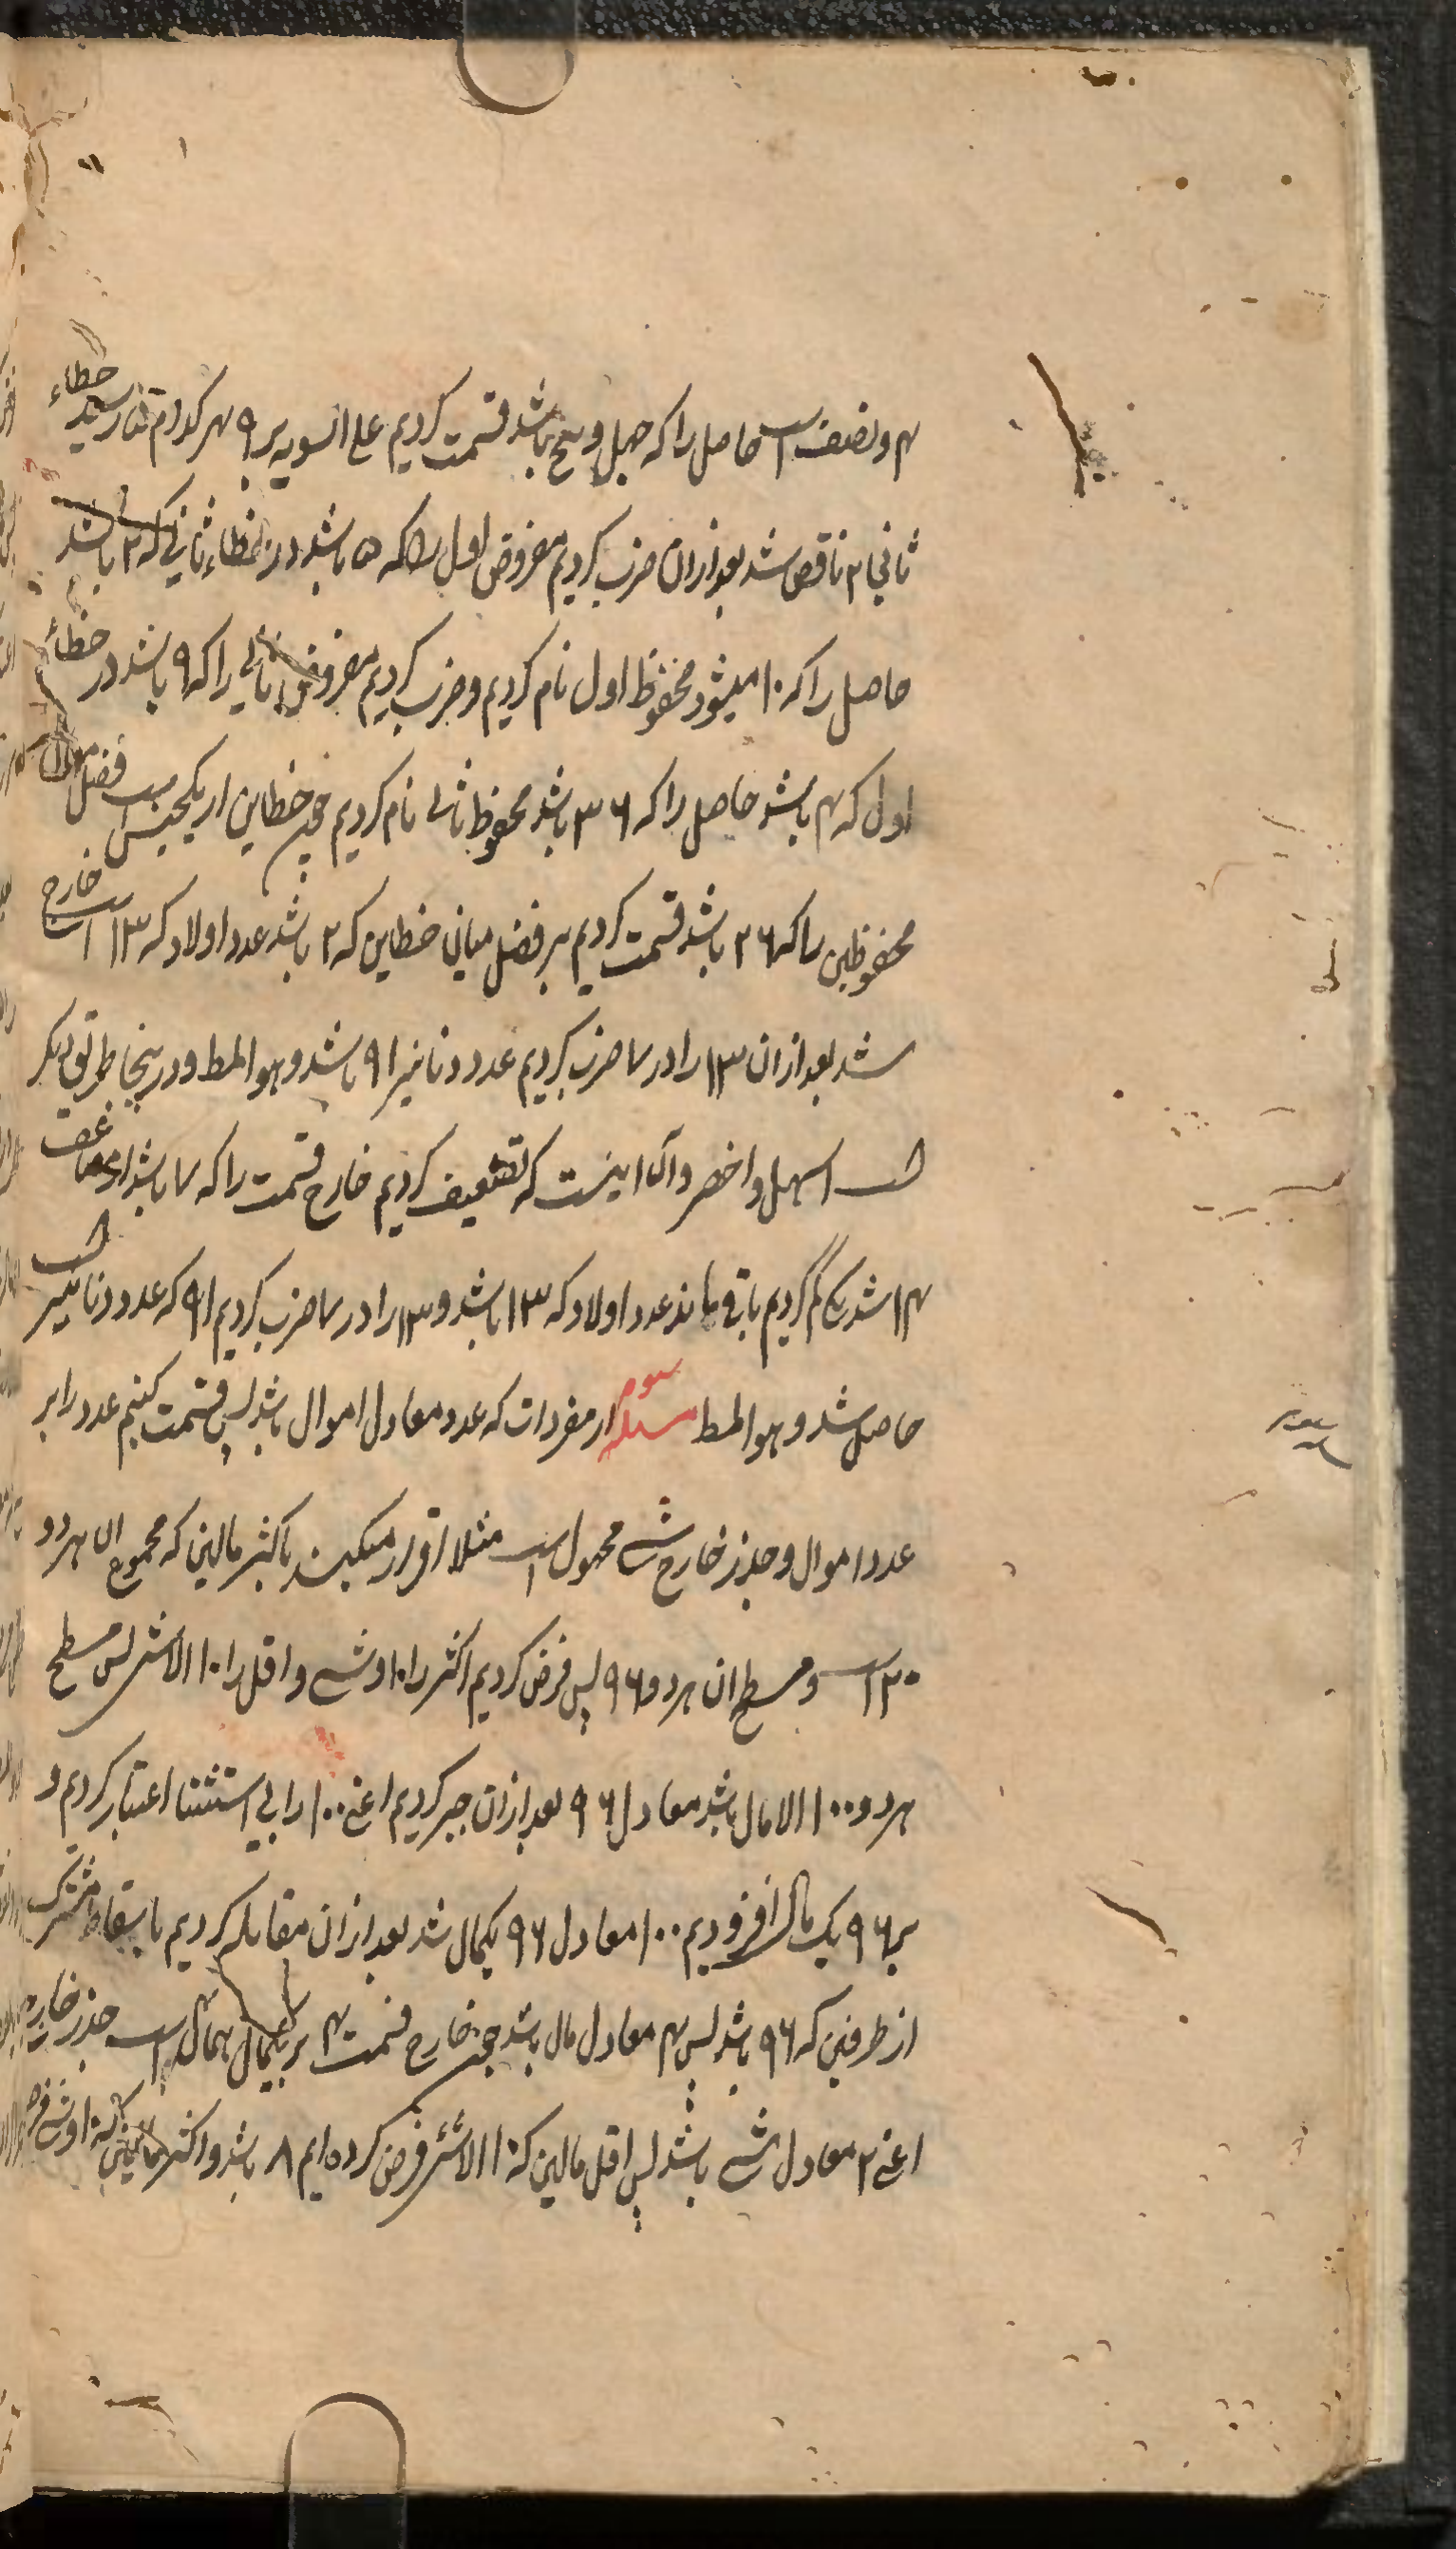 ۴ و نصف است حاصل را که چهل و پنج باشد قسمت کردیم علی السویه بر ۹ هر کدام ۵ رسید خطاء
ثانی ۲ ناقص شد بعد ازان ضرب کردیم مفروض اول را که ۵ باشد در خطاء ثانی که ۲ باشد
حاصل را که ۱۰ میشود محفوظ اول نام کردیم و ضرب کردیم مفروض ثانی را که ۹ باشد در خطاء
اول که ۴ باشد حاصل را که ۳۶ باشد محفوظ ثانی نام کردیم چون خطاین از یکجنس است فضل میان
محفوظین را که ۲۶ باشد قسمت کردیم بر فضل میان خطاین که ۲ باشد عدد اولاد که ۱۳ است خارج
شد بعد ازان ۱۳ را در ۷ ضرب کردیم عدد دنانیر ۹۱ باشد و هو المط و درینجا طریق دیگر
است اسهل و اخصر و آن اینست که تضعیف کردیم خارج قسمت را که ۷ باشد مضاعف
۱۴ شد یک کم کردیم باقی ماند عدد اولاد که ۱۳ باشد و ۱۳ را در ۷ ضرب کردیم ۹۱ که عدد دنانیر است
حاصل شد و هو المط مسئله سوم از مفردات که عدد معادل اموال باشد پس قسمت کنیم عدد را بر
عدد اموال و جذر خارج شی مجهول است مثلا اقرار میکند باکثر مالین که مجموع ان هردو
۲۰ است و مسطح ان هردو ۹۶ پس فرض کردیم اکثر را ۱۰ و شی و اقل را ۱۰ الا شی پس مسطح
هردو ۱۰۰ الا مال باشد معادل ۹۶ بعد ازان جبر کردیم اعنی ۱۰۰ را بی استثنا اعتبار کردیم و
بر ۹۶ یک مال افزودیم ۱۰۰ معادل ۹۶ یکمال شد بعد ازان مقابله کردیم باسقاط مشترک
از طرفین که ۹۶ باشد پس ۴ معادل مال باشد چون خارج قسمت ۴ بر یکمال همان ۴ است جذر خارج
اعنی ۲ معادل شی باشد پس اقل مالین که ۱۰ الا شی فرض کرده ایم ۸ باشد و اکثر مالین که ۱۰ و شی